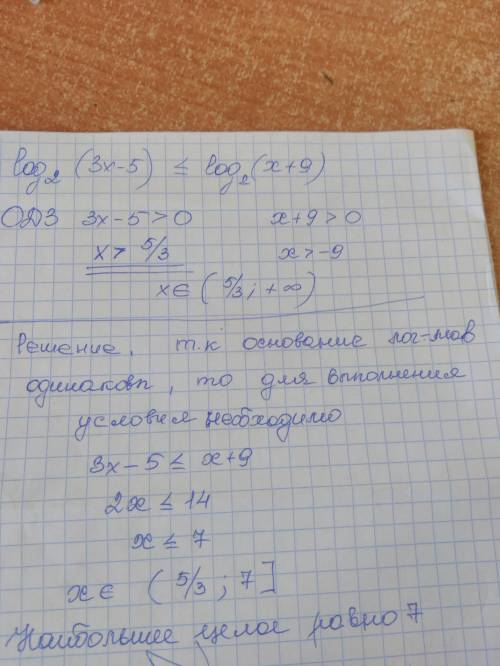 log₂ (3x-5) ≤ log₂(x+9)
ОДЗ 3x-5>0 x+9>0
x> 5/3 x>-9
x∈ (5/3; +∞)
Решение, т.к основание лог-мов
одинаковы, то для выполнения
условия необходимо
3x-5 ≤ x+9
2x ≤ 14
x ≤ 7
x∈ (5/3; 7]
Наибольшее целое равно 7